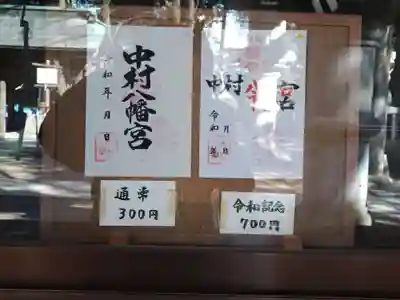 中村八幡宮
令和 年 月 日
中村八幡宮
令和 月 日
通常
300円
令和記念
700円